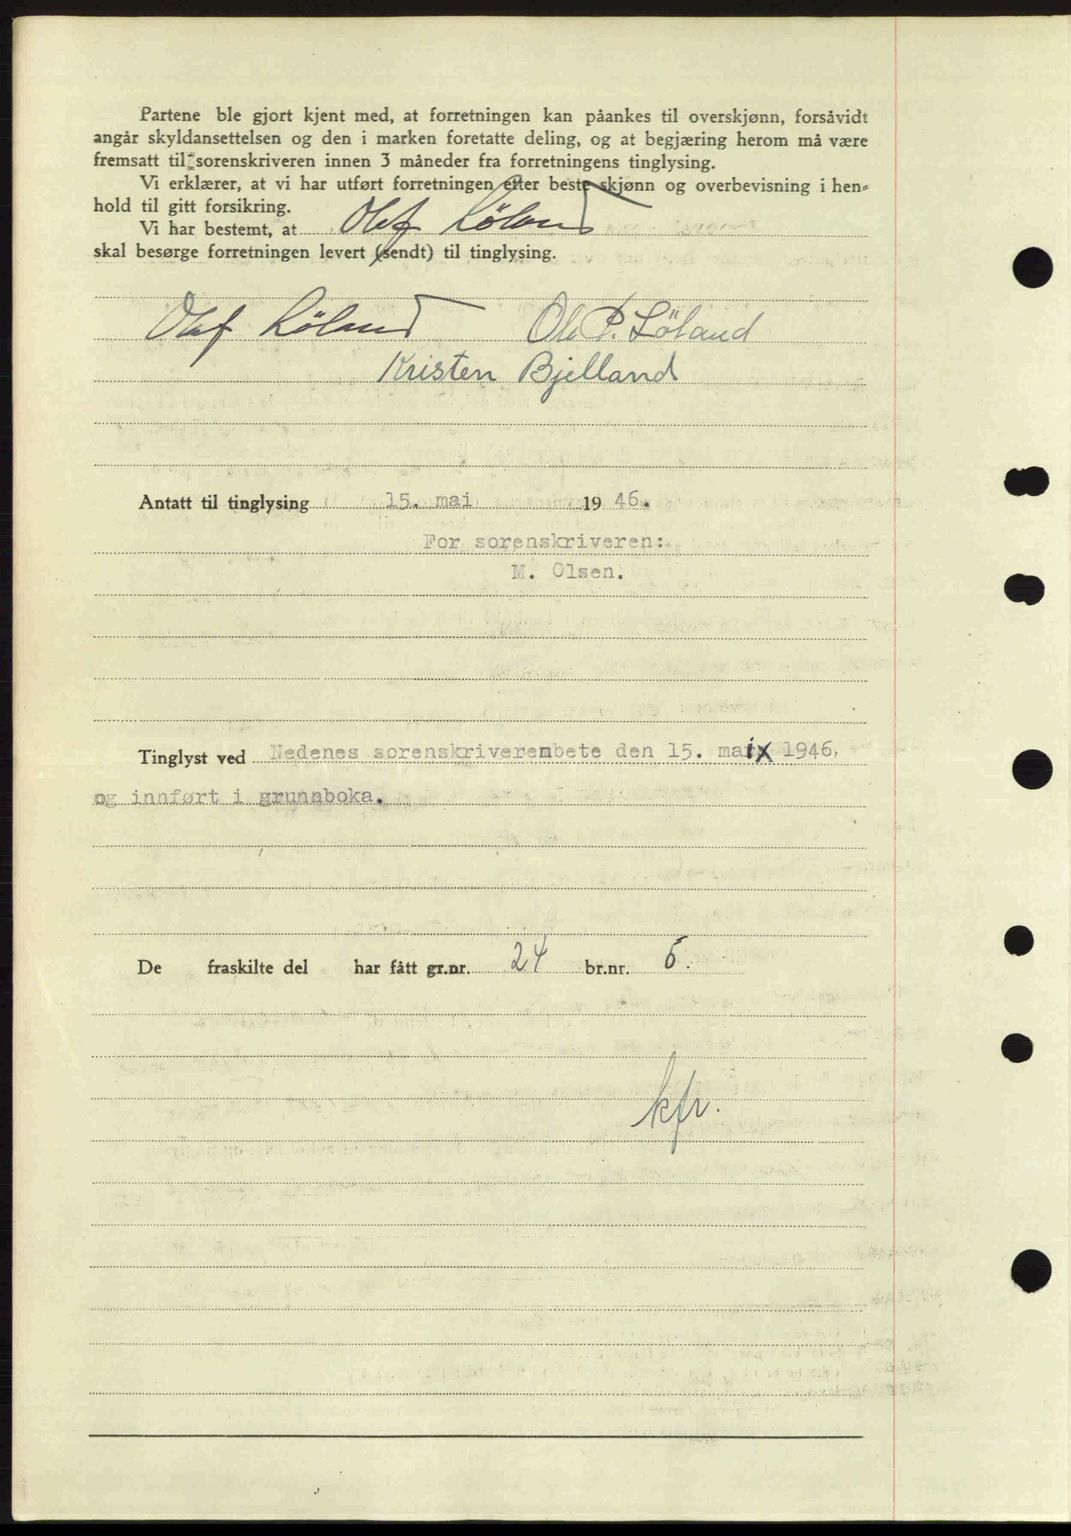 Partene ble gjort kjent med, at forretningen kan påankes til overskjønn, forsåvidt
angår skyldansettelsen og den i marken foretatte deling, og at begjæring herom må være
fremsatt til sorenskriveren innen 3 måneder fra forretningens tinglysing.
Vi erklærer, at vi har utført forretningen etter beste skjønn og overbevisning i hen-
hold til gitt forsikring.
Vi har bestemt, at Olaf Løland
skal besørge forretningen levert (sendt) til tinglysing.
Olaf Løland Ole P. Löland
Kristen Bjelland
Antatt til tinglysing 15. mai 1946.
For sorenskriveren:
M. Olsen.
Tinglyst ved Nedenes sorenskriverembete den 15. mai 1946,
og innført i grunnboka.
De fraskilte del har fått gr.nr. 24 br.nr. 5.
kfr.